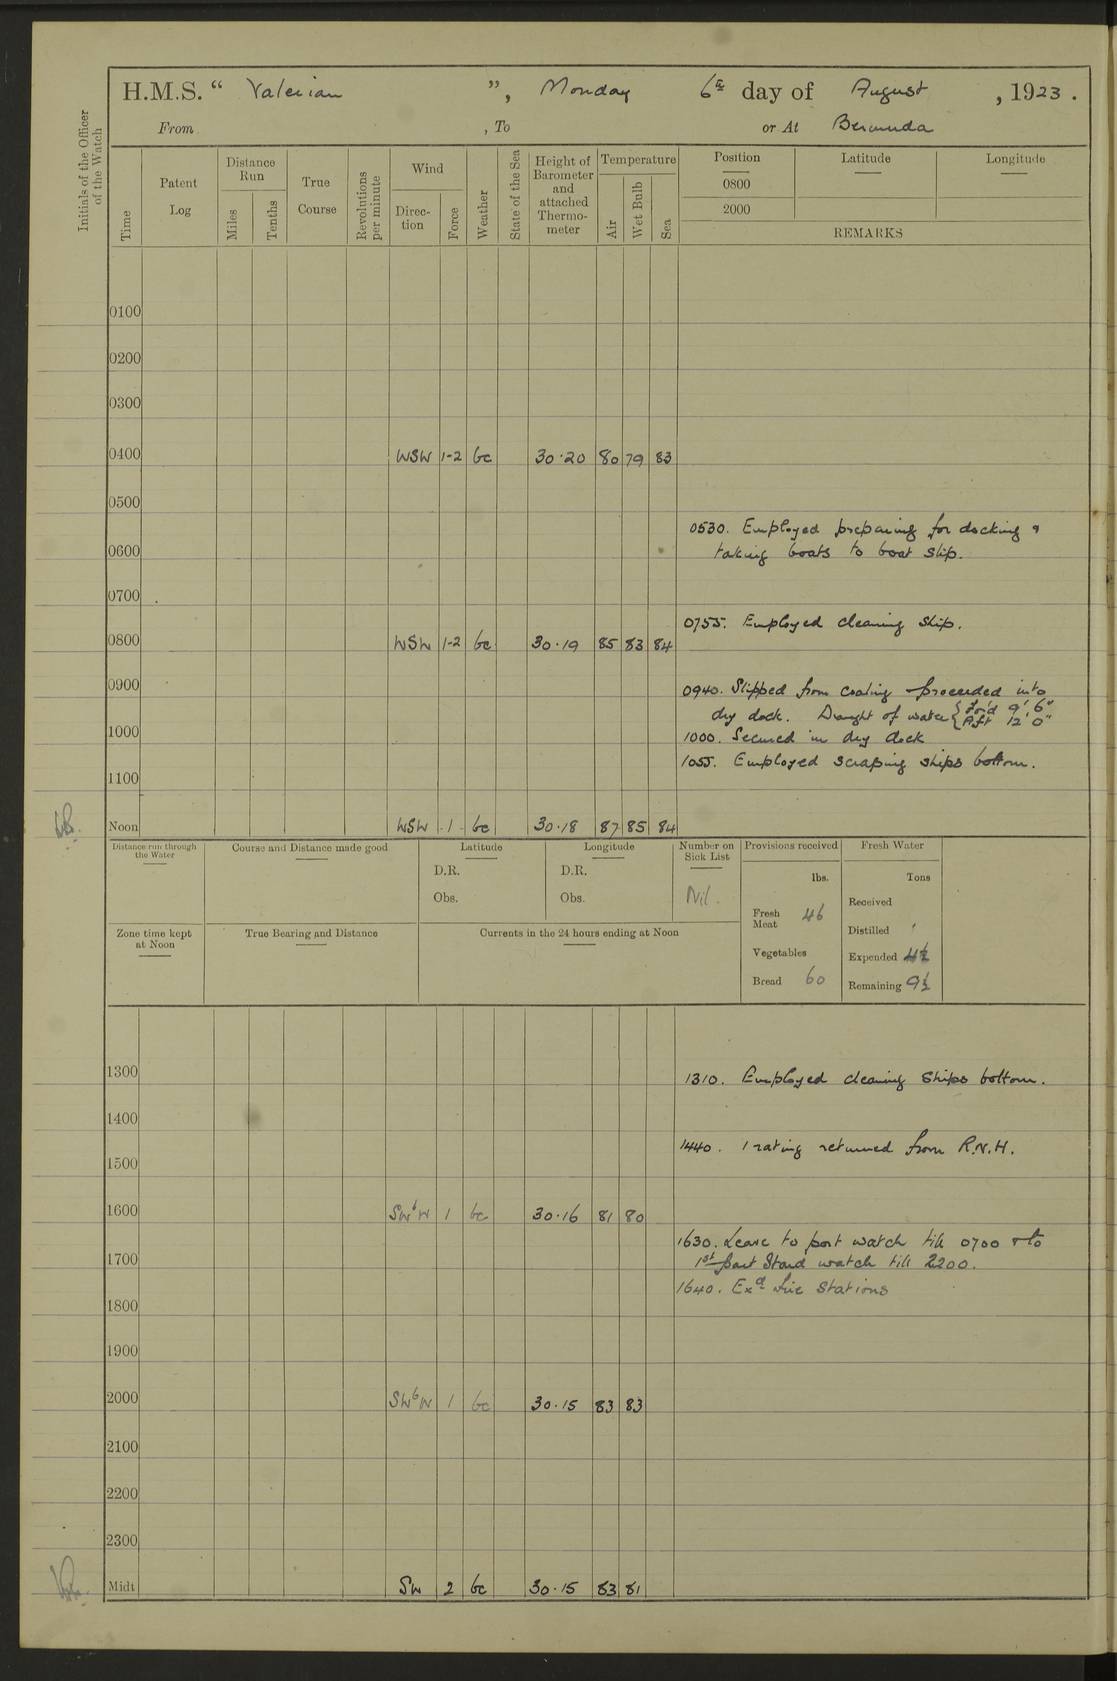 H.M.S. “ Valerian ”, Monday 6th day of August , 1923 .
From , To or At Bermuda
Initials of the Officer of the Watch
Time
Patent Log
Distance Run
Miles
Tenths
True Course
Revolutions per minute
Wind
Direc- tion
Force
Weather
State of the Sea
Height of Barometer and attached Thermo- meter
Temperature
Air
Wet Bulb
Sea
Position
Latitude
Longitude
0800
2000
REMARKS
0100
0200
0300
0400 WSW 1-2 bc 30.20 80 79 83
0500
0530. Employed preparing for docking &
0600 taking boats to boat slip.
0700
0755. Employed cleaning ship.
0800 WSW 1-2 bc 30.19 85 83 84
0900 0940. Slipped from coaling proceeded into
dry dock. Draught of water { For'd 9' 6" Aft 12' 0"
1000 1000. Secured in dry dock
1055. Employed scraping ships bottom.
1100
Noon WSW 1 bc 30.18 87 85 84
Distance run through the Water
Course and Distance made good
Latitude
D.R.
Obs.
Longitude
D.R.
Obs.
Number on Sick List
Nil.
Provisions received
lbs.
Fresh Meat 46
Vegetables
Bread 60
Fresh Water
Tons
Received
Distilled
Expended 4½
Remaining 9½
Zone time kept at Noon
True Bearing and Distance
Currents in the 24 hours ending at Noon
1300 1310. Employed cleaning ships bottom.
1400
1440. 1 rating returned from R.N.H.
1500
1600 SWbW 1 bc 30.16 81 80
1630. Leave to port watch till 0700 & to
1700 1st part Starbd watch till 2200.
1640. Exd fire Stations
1800
1900
2000 SWbW 1 bc 30.15 83 83
2100
2200
2300
Midt SW 2 bc 30.15 83 81